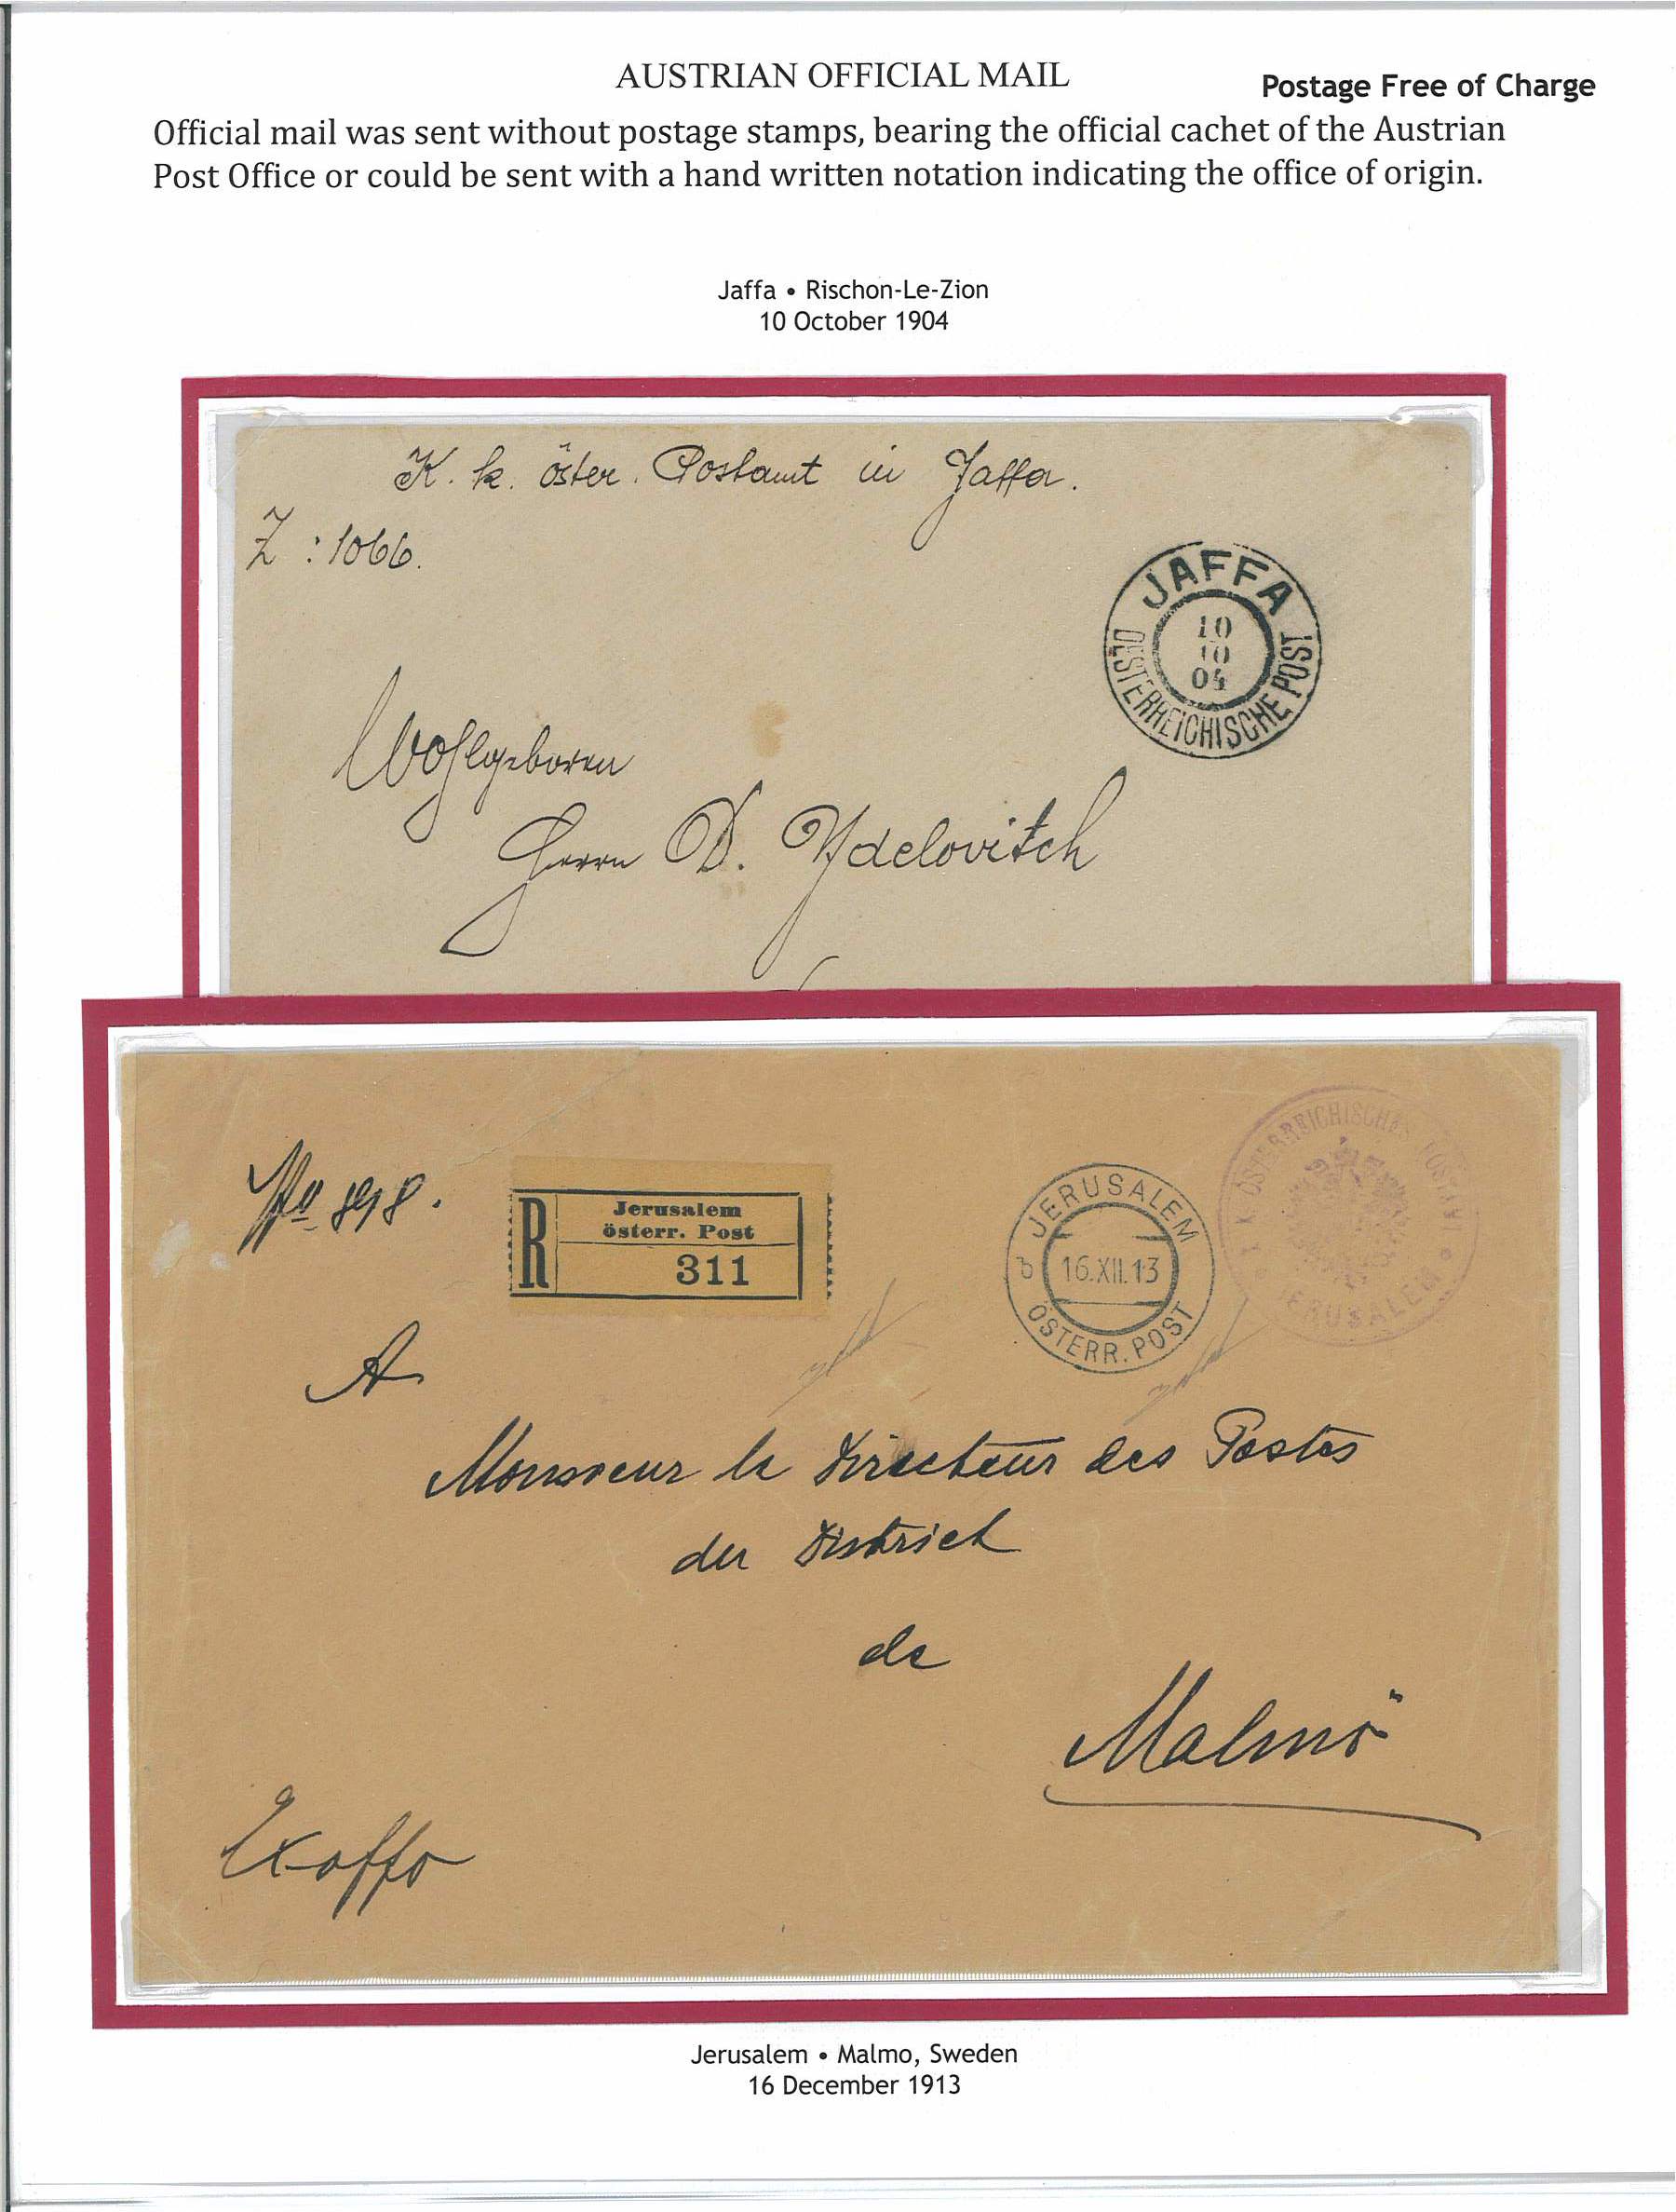 AUSTRIAN OFFICIAL MAIL
Postage Free of Charge
Official mail was sent without postage stamps, bearing the official cachet of the Austrian
Post Office or could be sent with a hand written notation indicating the office of origin.
Jaffa • Rischon-Le-Zion
10 October 1904
K. k. öster. Postamt in Jaffa.
Z : 1066.
JAFFA
10
10
04
OESTERREICHISCHE POST
Wohlgeboren
Herrn D. Ydelovitch
No 898.
R
Jerusalem
österr. Post
311
JERUSALEM
16.XII.13
ÖSTERR. POST
K. K. ÖSTERREICHISCHES POSTAMT
JERUSALEM
A
Monsieur le Directeur des Postes
du District
de
Malmö
Exoffo
Jerusalem • Malmo, Sweden
16 December 1913